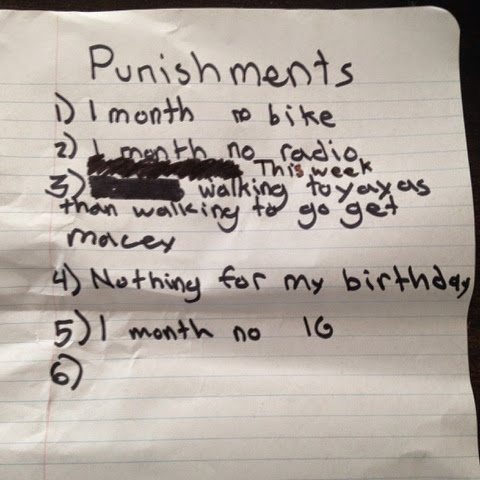 Punishments
1) 1 month no bike
2) 1 month no radio
This week
3) walking to yayas
than walking to go get
macey
4) Nothing for my birthday
5) 1 month no IG
6)